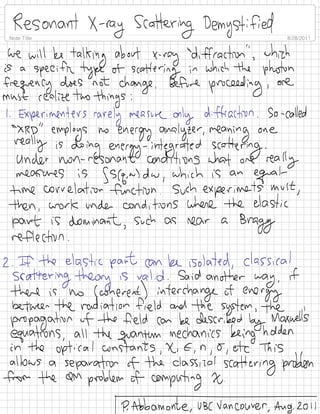 Resonant X-ray Scattering Demystified
Note Title
8/28/2011
We will be talking about x-ray "diffraction", which
is a specific type of scattering in which the photon
frequency does not change. Before proceeding, one
must realize two things:
1. Experimenters rarely measure only diffraction. So-called
"XRD" employs no energy analyzer, meaning one
really is doing energy-integrated scattering.
Under non-resonant conditions what one really
measures is ∫S(q,ω)dω, which is an equal-
time correlation function. Such experiments must,
then, work under conditions where the elastic
part is dominant, such as near a Bragg
reflection.
2. If the elastic part can be isolated, classical
scattering theory is valid. Said another way, if
there is no (coherent) interchange of energy
between the radiation field and the system, the
propagation of the field can be described by Maxwells
equations, all the quantum mechanics being hidden
in the optical constants, χ, ε, n, σ, etc. This
allows a separation of the classical scattering problem
from the QM problem of computing χ.
P. Abbamonte, UBC Vancouver, Aug. 2011